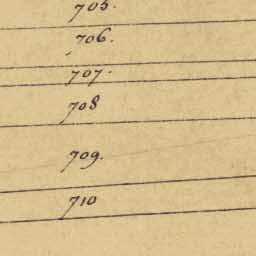 705.
706.
707.
708
709.
710